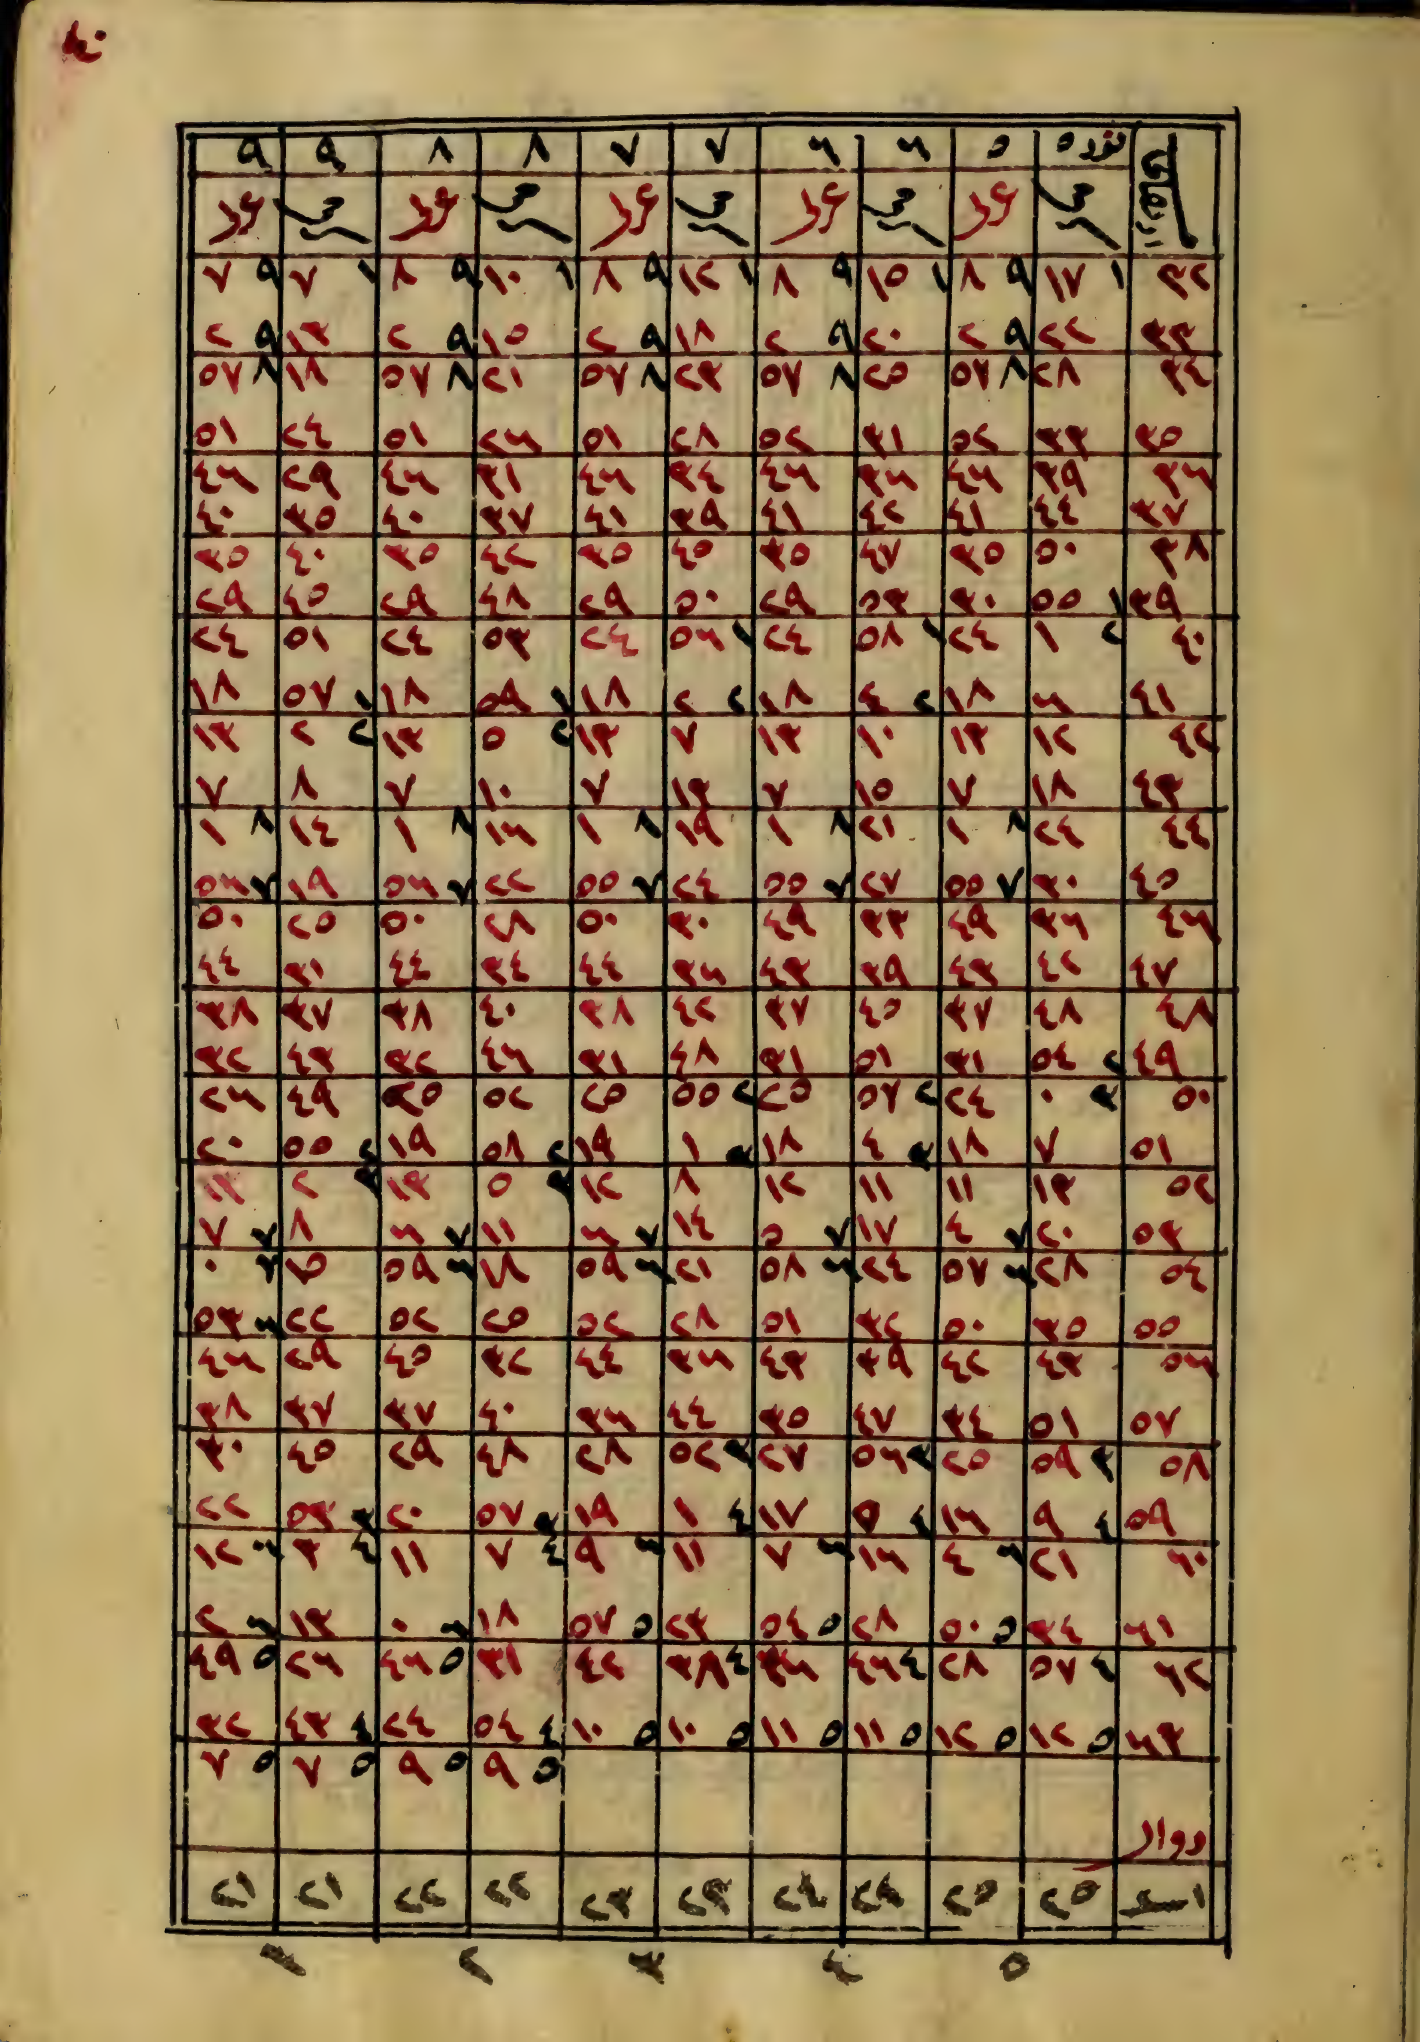 ٤٠
٥ ٥ ٦ ٦ ٧ ٧ ٨ ٨ ٩ ٩
٣٢ ١ ١٧ ٩ ٨ ١ ١٥ ٩ ٨ ١ ١٢ ٩ ٨ ١ ١٠ ٩ ٨ ١ ٧ ٩ ٧
٣٣ ٢٢ ٩ ٢ ٢٠ ٩ ٢ ١٨ ٩ ٢ ١٥ ٩ ٢ ١٣ ٩ ٢
٣٤ ٢٨ ٨ ٥٧ ٢٥ ٨ ٥٧ ٢٣ ٨ ٥٧ ٢١ ٨ ٥٧ ١٨ ٨ ٥٧
٣٥ ٣٣ ٥٢ ٣١ ٥٢ ٢٨ ٥١ ٢٦ ٥١ ٢٤ ٥١
٣٦ ٣٩ ٤٦ ٣٦ ٤٦ ٣٤ ٤٦ ٣١ ٤٦ ٢٩ ٤٦
٣٧ ٤٤ ٤١ ٤٢ ٤١ ٣٩ ٤١ ٣٧ ٤٠ ٣٥ ٤٠
٣٨ ٥٠ ٣٥ ٤٧ ٣٥ ٤٥ ٣٥ ٤٢ ٣٥ ٤٠ ٣٥
٣٩ ١ ٥٥ ٣٠ ٥٣ ٢٩ ٥٠ ٢٩ ٤٨ ٢٩ ٤٥ ٢٩
٤٠ ٢ ١ ٢٤ ١ ٥٨ ٢٤ ١ ٥٦ ٢٤ ٥٣ ٢٤ ٥١ ٢٤
٤١ ٦ ١٨ ٢ ٤ ١٨ ٢ ٢ ١٨ ١ ٥٩ ١٨ ١ ٥٧ ١٨
٤٢ ١٢ ١٣ ١٠ ١٣ ٧ ١٣ ٢ ٥ ١٣ ٢ ٢ ١٣
٤٣ ١٨ ٧ ١٥ ٧ ١٣ ٧ ١٠ ٧ ٨ ٧
٤٤ ٢٤ ٨ ١ ٢١ ٨ ١ ١٩ ٨ ١ ١٦ ٨ ١ ١٤ ٨ ١
٤٥ ٣٠ ٧ ٥٥ ٢٧ ٧ ٥٥ ٢٤ ٧ ٥٥ ٢٢ ٧ ٥٦ ١٩ ٧ ٥٦
٤٦ ٣٦ ٤٩ ٣٣ ٤٩ ٣٠ ٥٠ ٢٨ ٥٠ ٢٥ ٥٠
٤٧ ٤٢ ٤٣ ٣٩ ٤٣ ٣٦ ٤٤ ٣٤ ٤٤ ٣١ ٤٤
٤٨ ٤٨ ٣٧ ٤٥ ٣٧ ٤٢ ٣٨ ٤٠ ٣٨ ٣٧ ٣٨
٤٩ ٢ ٥٤ ٣١ ٥١ ٣١ ٤٨ ٣١ ٤٦ ٣٢ ٤٣ ٣٢
٥٠ ٣ ٠ ٢٤ ٢ ٥٧ ٢٥ ٢ ٥٥ ٢٥ ٥٢ ٢٥ ٤٩ ٢٦
٥١ ٧ ١٨ ٣ ٤ ١٨ ٣ ١ ١٩ ٢ ٥٨ ١٩ ٢ ٥٥ ٢٠
٥٢ ١٣ ١١ ١١ ١٢ ٨ ١٢ ٣ ٥ ١٣ ٣ ٢ ١٣
٥٣ ٢٠ ٧ ٤ ١٧ ٧ ٥ ١٤ ٧ ٦ ١١ ٧ ٦ ٨ ٧ ٧
٥٤ ٢٨ ٦ ٥٧ ٢٤ ٦ ٥٨ ٢١ ٦ ٥٩ ١٨ ٦ ٥٩ ١٥ ٧ ٠
٥٥ ٣٥ ٥٠ ٣٢ ٥١ ٢٨ ٥٢ ٢٥ ٥٢ ٢٢ ٦ ٥٣
٥٦ ٤٣ ٤٢ ٣٩ ٤٣ ٣٦ ٤٤ ٣٢ ٤٥ ٢٩ ٤٦
٥٧ ٥١ ٣٤ ٤٧ ٣٥ ٤٤ ٣٦ ٤٠ ٣٧ ٣٧ ٣٨
٥٨ ٣ ٥٩ ٢٥ ٣ ٥٦ ٢٧ ٣ ٥٢ ٢٨ ٤٨ ٢٩ ٤٥ ٣٠
٥٩ ٤ ٩ ١٦ ٤ ٥ ١٧ ٤ ١ ١٩ ٣ ٥٧ ٢٠ ٣ ٥٣ ٢٢
٦٠ ٢١ ٦ ٤ ١٦ ٦ ٧ ١١ ٦ ٩ ٤ ٧ ١١ ٤ ٣ ٦ ١٢
٦١ ٣٤ ٥ ٥٠ ٢٨ ٥ ٥٤ ٢٣ ٥ ٥٧ ١٨ ٦ ٠ ١٣ ٦ ٢
٦٢ ٤ ٥٧ ٢٨ ٤ ٤٦ ٣٦ ٤ ٣٨ ٤٢ ٣١ ٥ ٤٦ ٢٦ ٥ ٤٩
٦٣ ٥ ١٢ ٥ ١٢ ٥ ١١ ٥ ١١ ٥ ١٠ ١٠ ٤ ٥٤ ٢٤ ٤ ٤٣ ٣٢
٥ ٩ ٥ ٩ ٥ ٧ ٥ ٧
٢٥ ٢٥ ٢٤ ٢٤ ٢٣ ٢٣ ٢٢ ٢٢ ٢١ ٢١
٥ ٤ ٣ ٢ ١